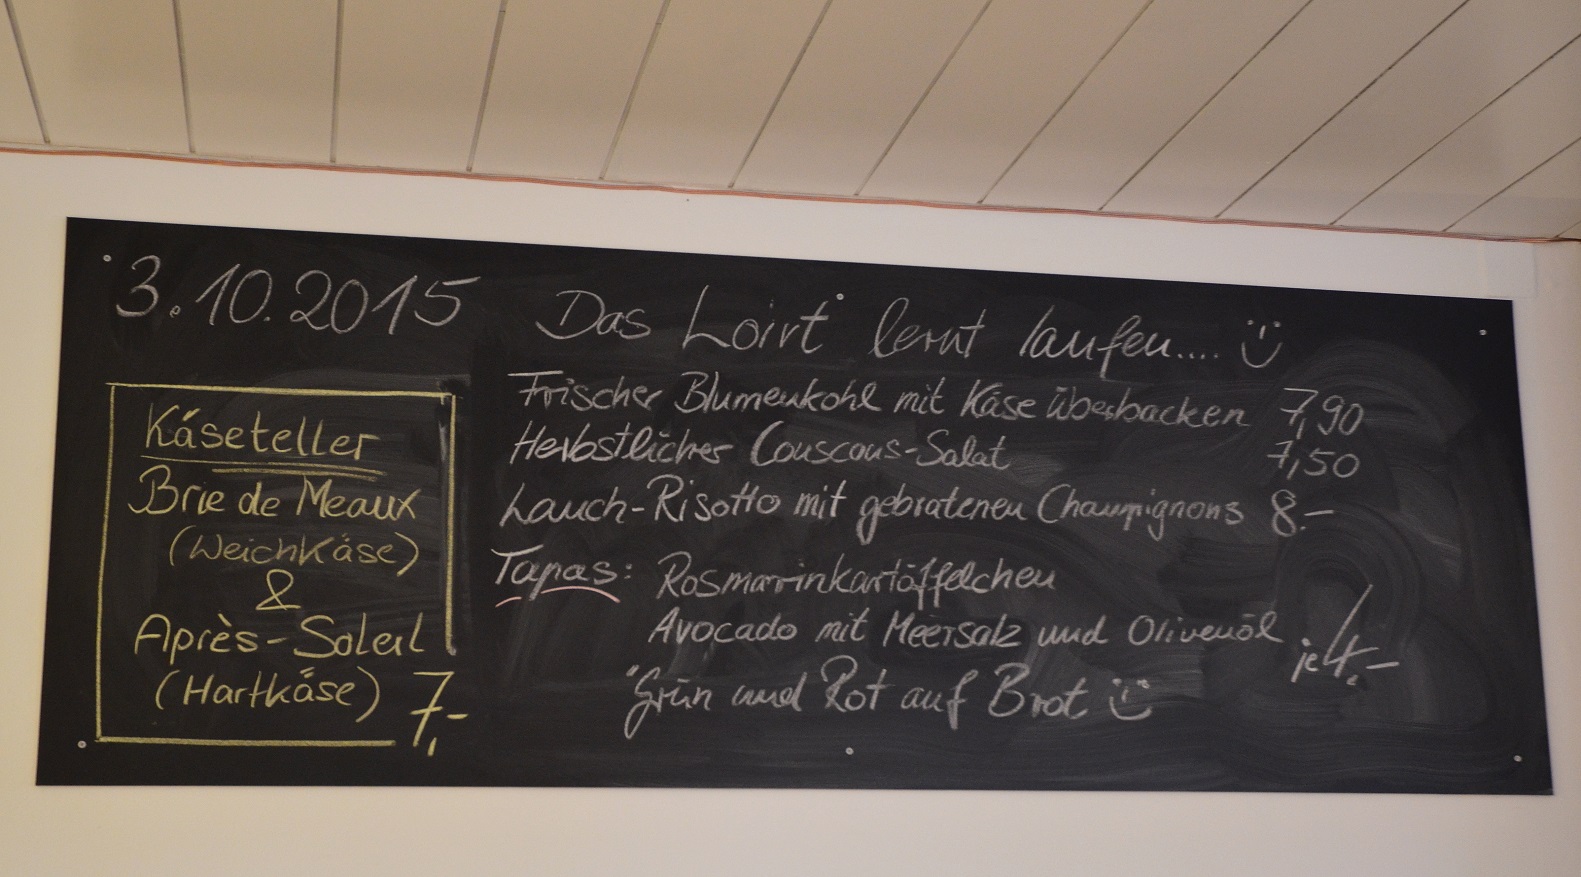 3.10.2015
Das Loirt lernt laufen....
Käseteller
Brie de Meaux
(Weichkäse)
&
Après-Soleil
(Hartkäse) 7,-
Frischer Blumenkohl mit Käse überbacken 7,90
Herbstlicher Couscous-Salat 7,50
Lauch-Risotto mit gebratenen Champignons 8.-
Tapas: Rosmarinkartöffelchen
Avocado mit Meersalz und Olivenöl
"Grün und Rot auf Brot
je 4,-